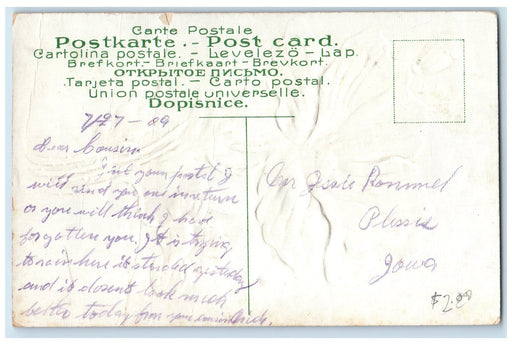 Carte Postale
Postkarte. - Post card.
Cartolina postale. - Levelező - Lap.
Brefkort. - Briefkaart - Brevkort.
ОТКРЫТОЕ ПИСЬМО.
Tarjeta postal. - Carto postal.
Union postale universelle.
Dopisnice.
7/27 - 09
Dear Cousin
your postal I
will send you one in return
or you will think I have
forgotten you. It is trying
to rain here it started yesterday
and it dosent look much
better today from your cousin
Jessie Rommel
Plessis
Iowa
$2.00